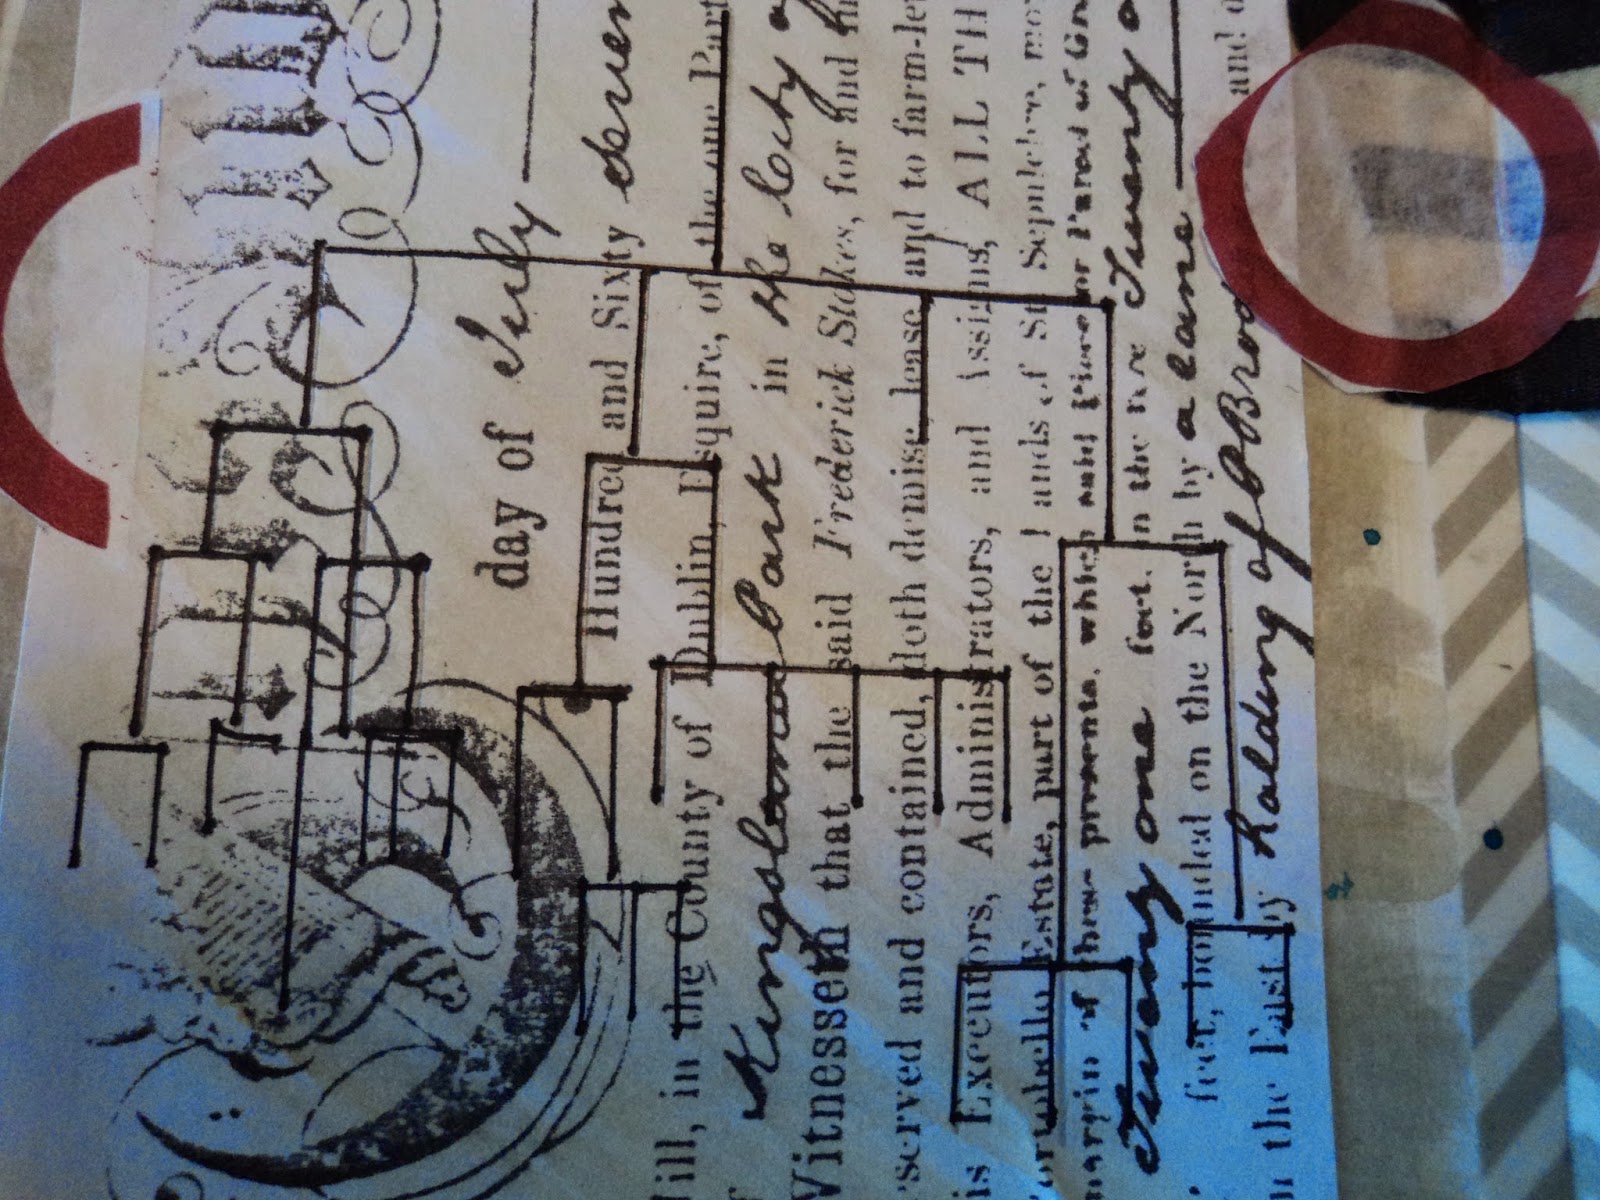 day of July
Hundred and Sixty seven
ill, in the County of Dublin, Esquire, of the one Part
Park in the City
Witnesseth that the said Frederick Stokes, for and
served and contained, doth demise, lease and to farm-le
is Executors, Administrators, and Assigns, ALL TH
Estate, part of the Lands of St Sepulchre, mo
margin of these presents, which said Piece or Parcel of Gro
Twenty one feet, in the rere Twenty o
feet, bounded on the North by a lane and o
the East by holding of